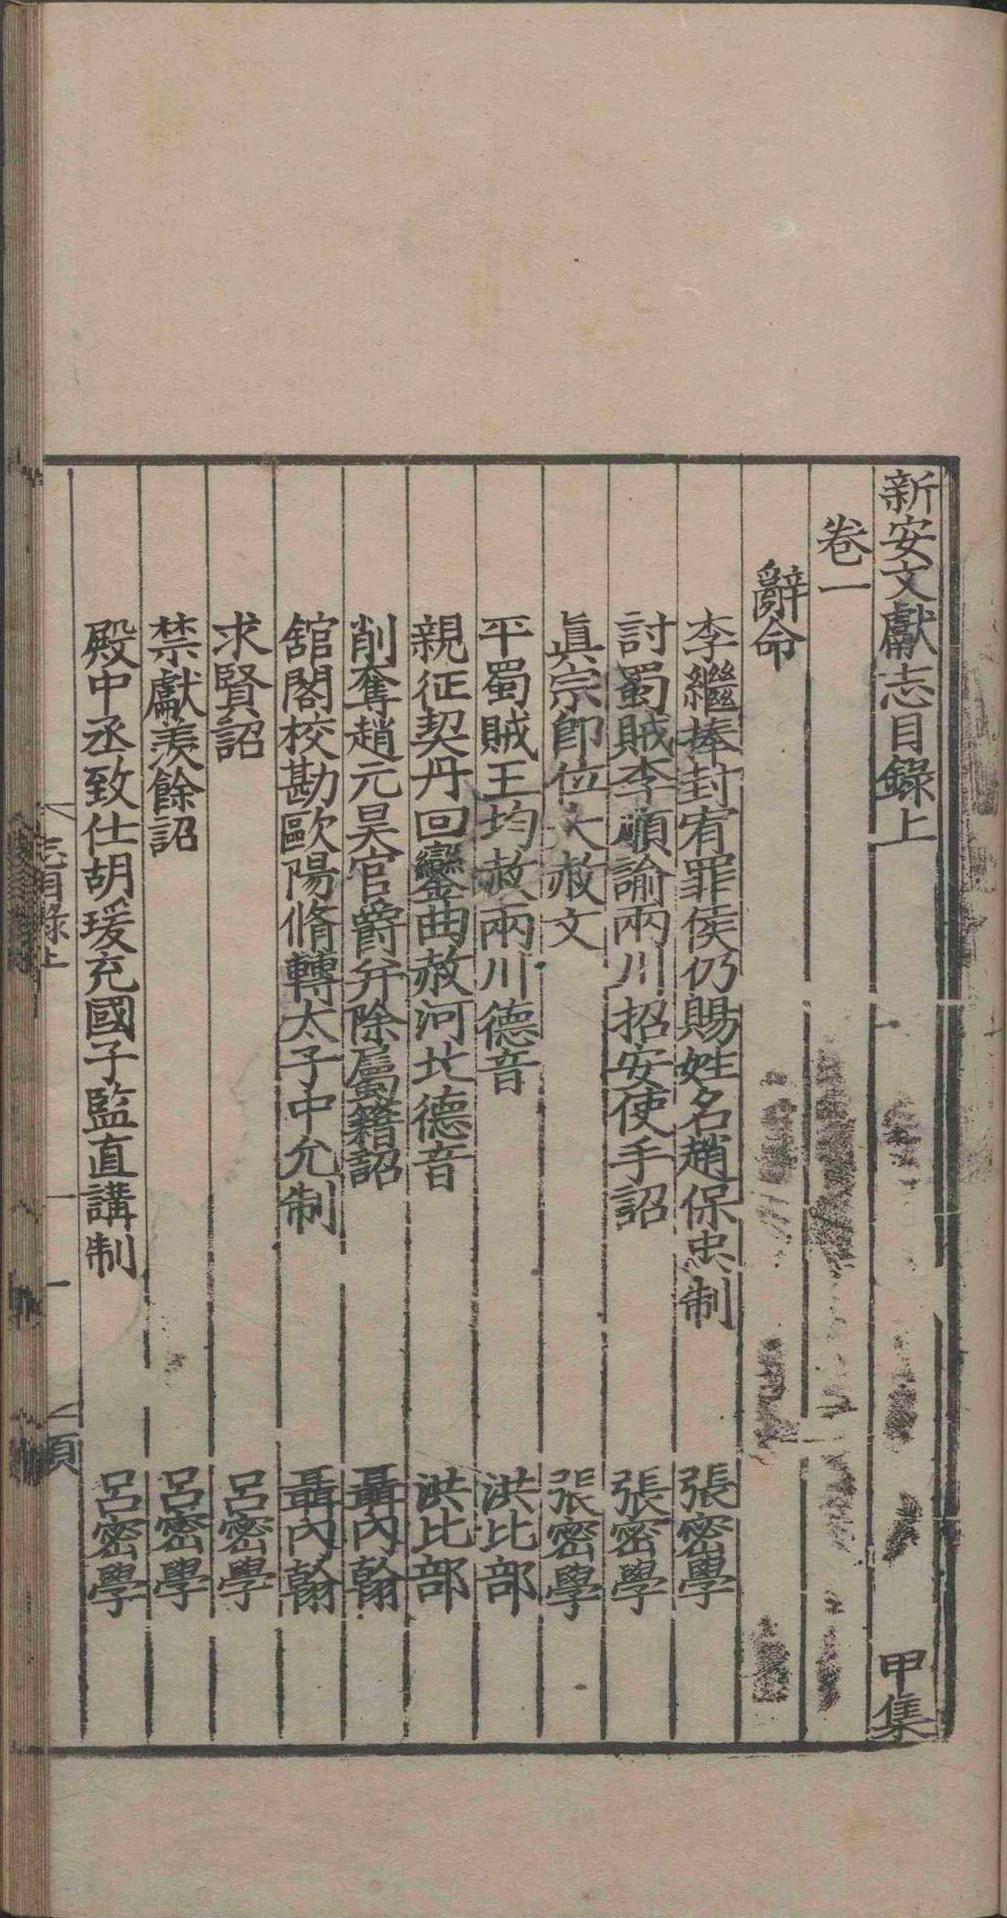 新安文獻志目錄上 甲集
卷一
辭命
李繼捧封宥罪侯仍賜姓名趙保忠制 張密學
討蜀賊李順諭兩川招安使手詔 張密學
眞宗卽位大赦文 張密學
平蜀賊王均赦兩川德音 洪比部
親征契丹回鑾曲赦河北德音 洪比部
削奪趙元昊官爵幷除屬籍詔 聶內翰
舘閣校勘歐陽脩轉太子中允制 聶內翰
求賢詔 呂密學
禁獻羨餘詔 呂密學
殿中丞致仕胡瑗充國子監直講制 呂密學
志目錄上 一